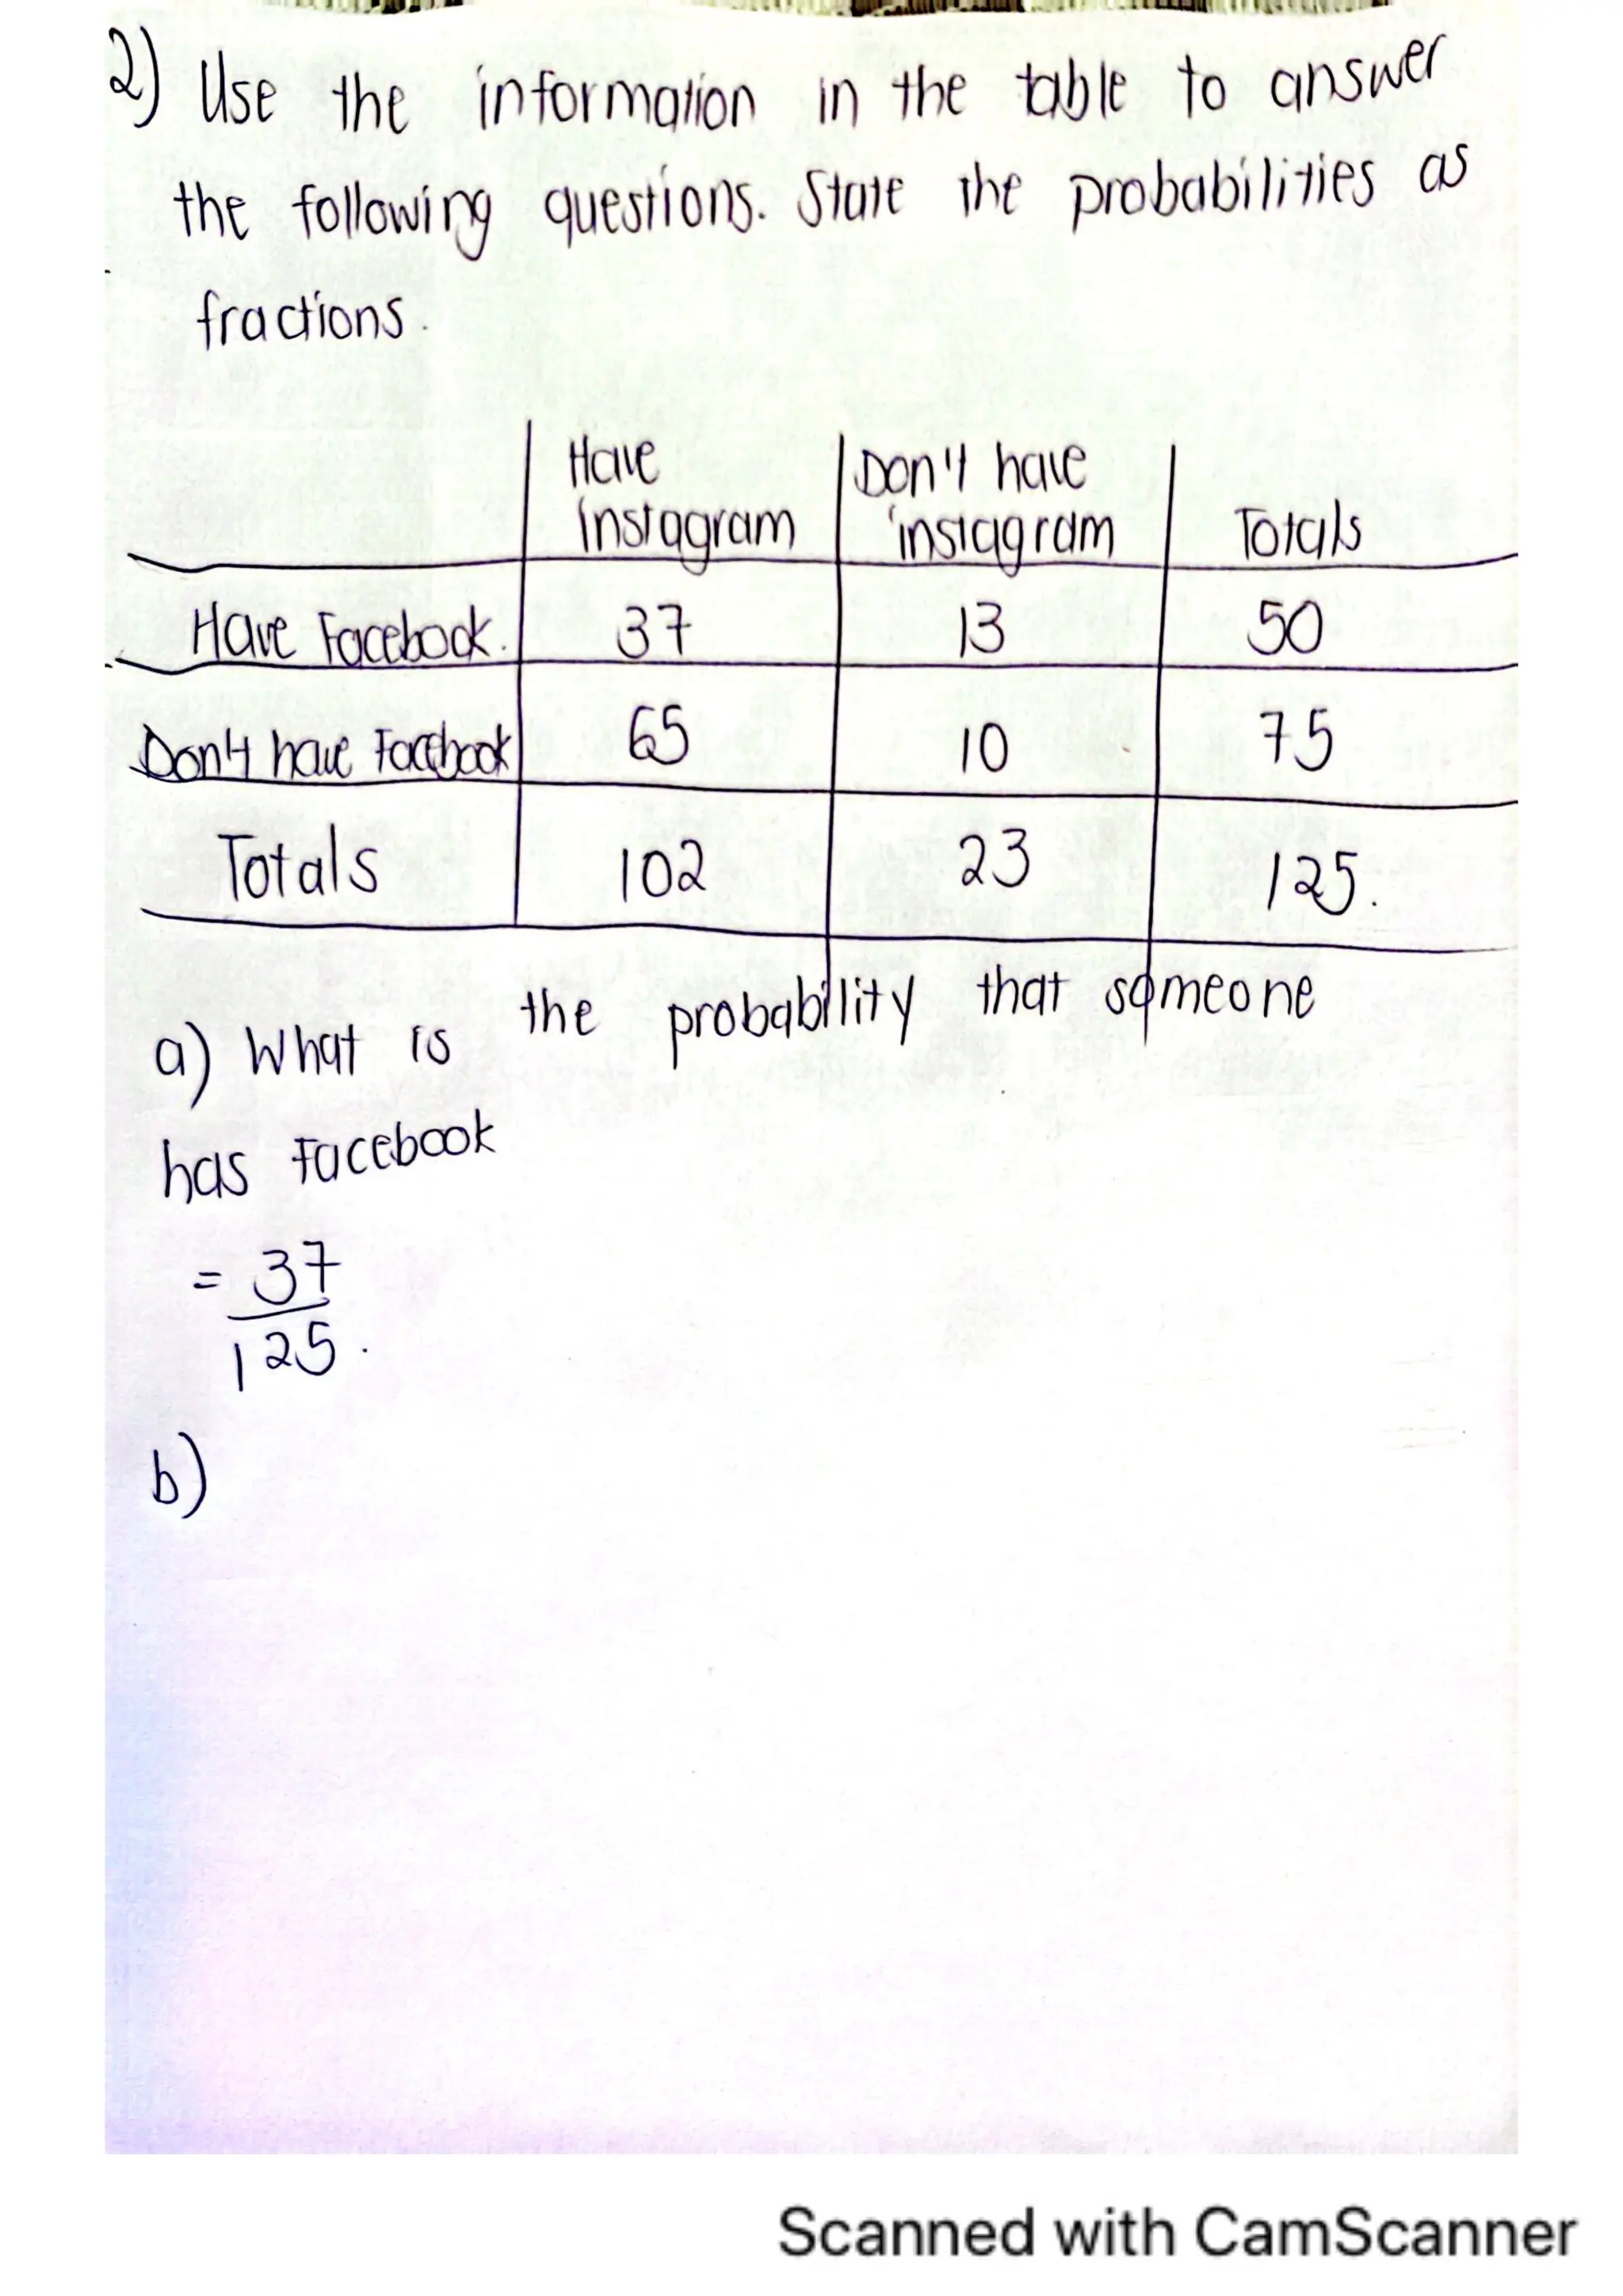 2) Use the information in the table to answer
the following questions. State the probabilities as
fractions.
Have Instagram Don't have instagram Totals
Have Facebook. 37 13 50
Don't have Facebook 65 10 75
Totals 102 23 125.
a) What is the probability that someone
has Facebook
= 37
125.
b)
Scanned with CamScanner